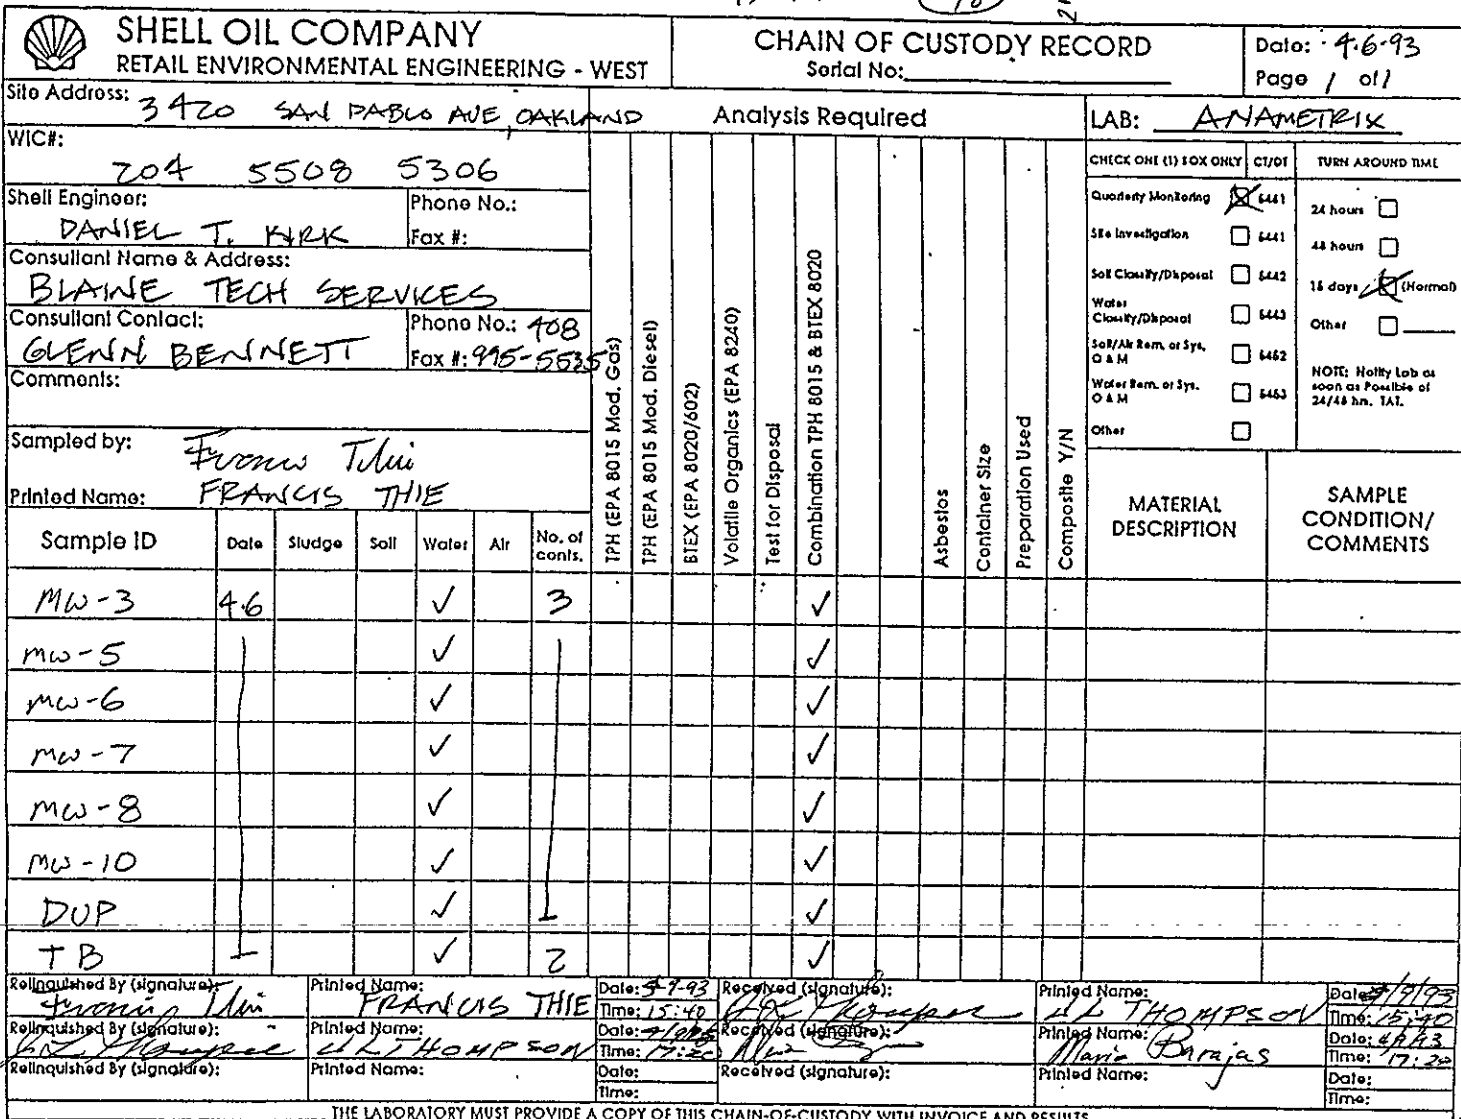 SHELL OIL COMPANY
RETAIL ENVIRONMENTAL ENGINEERING - WEST
CHAIN OF CUSTODY RECORD
Serial No:
Date: 4-6-93
Page 1 of 1
Site Address: 3420 SAN PABLO AVE, OAKLAND
WIC#:
204 5508 5306
Shell Engineer:
DANIEL T. KIRK
Phone No.:
Fax #:
Consultant Name & Address:
BLAINE TECH SERVICES
Consultant Contact:
GLENN BENNETT
Phone No.: 408
Fax #: 995-5535
Comments:
Sampled by:
Printed Name: FRANCIS THIE
Analysis Required
LAB: ANAMETRIX
CHECK ONE (1) BOX ONLY CT/DT TURN AROUND TIME
Quarterly Monitoring 6441
Site Investigation 6441
Soil Classify/Disposal 6442
Water Classify/Disposal 6443
Soil/Air Rem. or Sys. O & M 6452
Water Rem. or Sys. O & M 6453
Other
24 hours
48 hours
15 days (Normal)
Other
NOTE: Notify Lab as soon as Possible of 24/48 hrs. TAT.
Sample ID Date Sludge Soil Water Air No. of conts.
TPH (EPA 8015 Mod. Gas)
TPH (EPA 8015 Mod. Diesel)
BTEX (EPA 8020/602)
Volatile Organics (EPA 8240)
Test for Disposal
Combination TPH 8015 & BTEX 8020
Asbestos
Container Size
Preparation Used
Composite Y/N
MATERIAL DESCRIPTION
SAMPLE CONDITION/ COMMENTS
MW-3 4-6 ✓ 3 ✓
MW-5 ✓ ✓
MW-6 ✓ ✓
MW-7 ✓ ✓
MW-8 ✓ ✓
MW-10 ✓ ✓
DUP ✓ ✓
TB ✓ 2 ✓
Relinquished By (signature): Printed Name: FRANCIS THIE Date: Time: 15:40 Received (signature): Printed Name: THOMPSON Date: Time: 15:40
Relinquished By (signature): Printed Name: THOMPSON Date: Time: 17:20 Received (signature): Printed Name: Maria Barajas Date: Time: 17:20
Relinquished By (signature): Printed Name: Date: Time: Received (signature): Printed Name: Date: Time:
THE LABORATORY MUST PROVIDE A COPY OF THIS CHAIN-OF-CUSTODY WITH INVOICE AND RESULTS